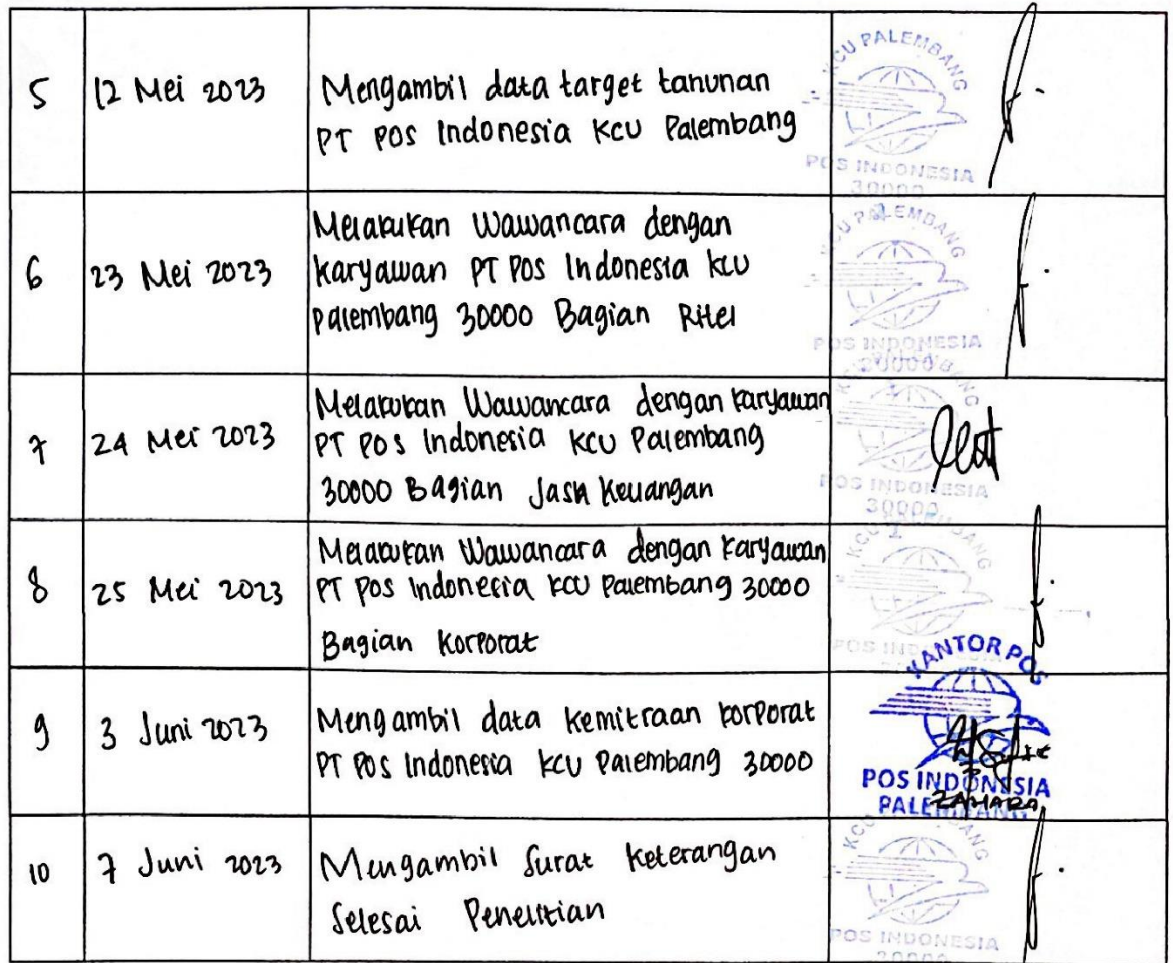 5
12 Mei 2023
Mengambil data target tahunan
PT Pos Indonesia KCU Palembang
KCU PALEMBANG
POS INDONESIA
30000
6
23 Mei 2023
Melakukan Wawancara dengan
karyawan PT Pos Indonesia KCU
Palembang 30000 Bagian Ritel
KCU PALEMBANG
POS INDONESIA
30000
7
24 Mei 2023
Melakukan Wawancara dengan karyawan
PT Pos Indonesia KCU Palembang
30000 Bagian Jasa Keuangan
POS INDONESIA
30000
8
25 Mei 2023
Melakukan Wawancara dengan karyawan
PT Pos Indonesia KCU Palembang 30000
Bagian Korporat
9
3 Juni 2023
Mengambil data kemitraan korporat
PT Pos Indonesia KCU Palembang 30000
KANTOR POS
POS INDONESIA
PALEMBANG
ZAHARA
10
7 Juni 2023
Mengambil Surat Keterangan
Selesai Penelitian
POS INDONESIA
30000